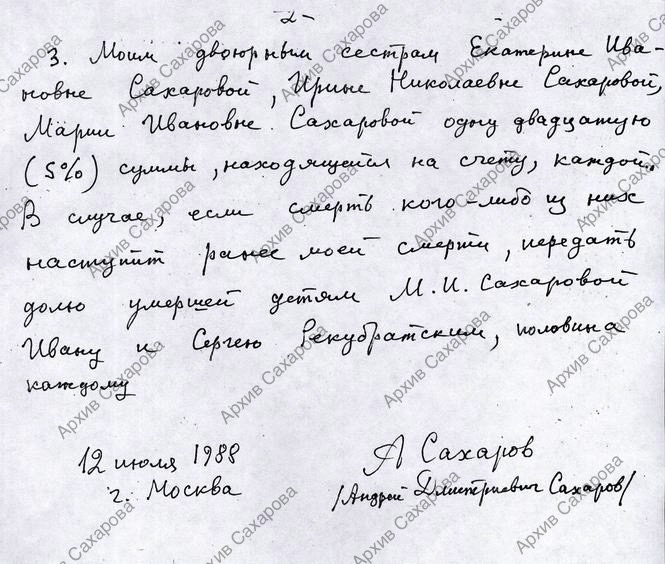 -2-
3. Моим двоюрным сестрам Екатерине Ива-
новне Сахаровой, Ирине Николаевне Сахаровой,
Марии Ивановне Сахаровой одну двадцатую
(5%) суммы, находящейся на счету, каждой.
В случае, если смерть кого-либо из них
наступит ранее моей смерти, передать
долю умершей детям М.И. Сахаровой
Ивану и Сергею Рекубратским, половина
каждому
12 июля 1988
г. Москва
А Сахаров
/Андрей Дмитриевич Сахаров/
Архив Сахарова